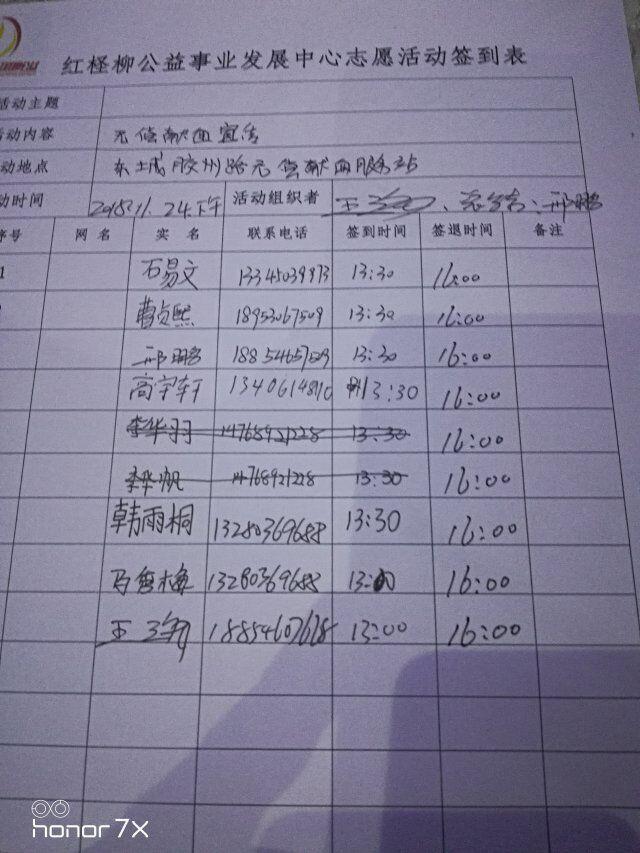 红柽柳公益事业发展中心志愿活动签到表
活动主题
活动内容 无偿献血宣传
动地点 东城胶州路无偿献血服务站
动时间 活动组织者 邢鹏
序号 网名 实名 联系电话 签到时间 签退时间 备注
1 石易文 13345039873 13:30 16:00
曹贞熙 18953067509 13:30 16:00
邢鹏 13:30 16:00
高宇轩 13:30 16:00
李华羽 14768921228 13:30 16:00
李华帆 14768921228 13:30 16:00
韩雨桐 13280369688 13:30 16:00
马雪梅 13280369688 16:00
18854607678 13:00 16:00
honor 7X